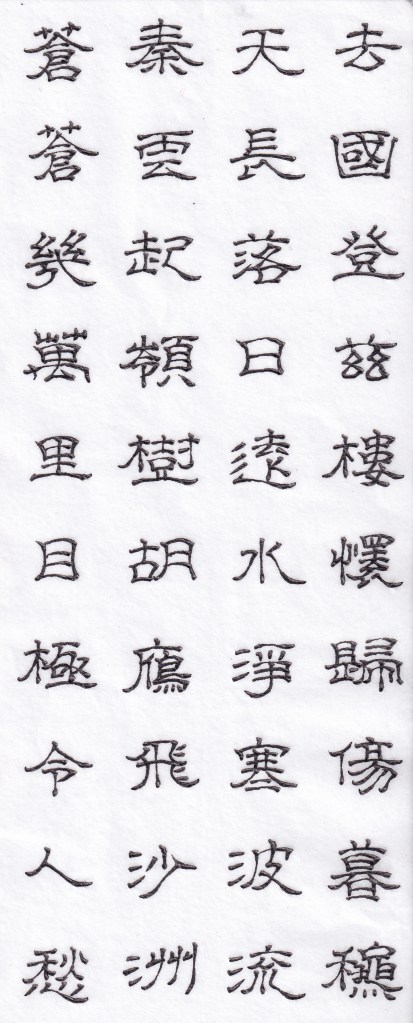 去國登茲樓懷歸傷暮穐
天長落日遠水淨寒波流
秦雲起嶺樹胡鴈飛沙洲
蒼蒼幾萬里目極令人愁